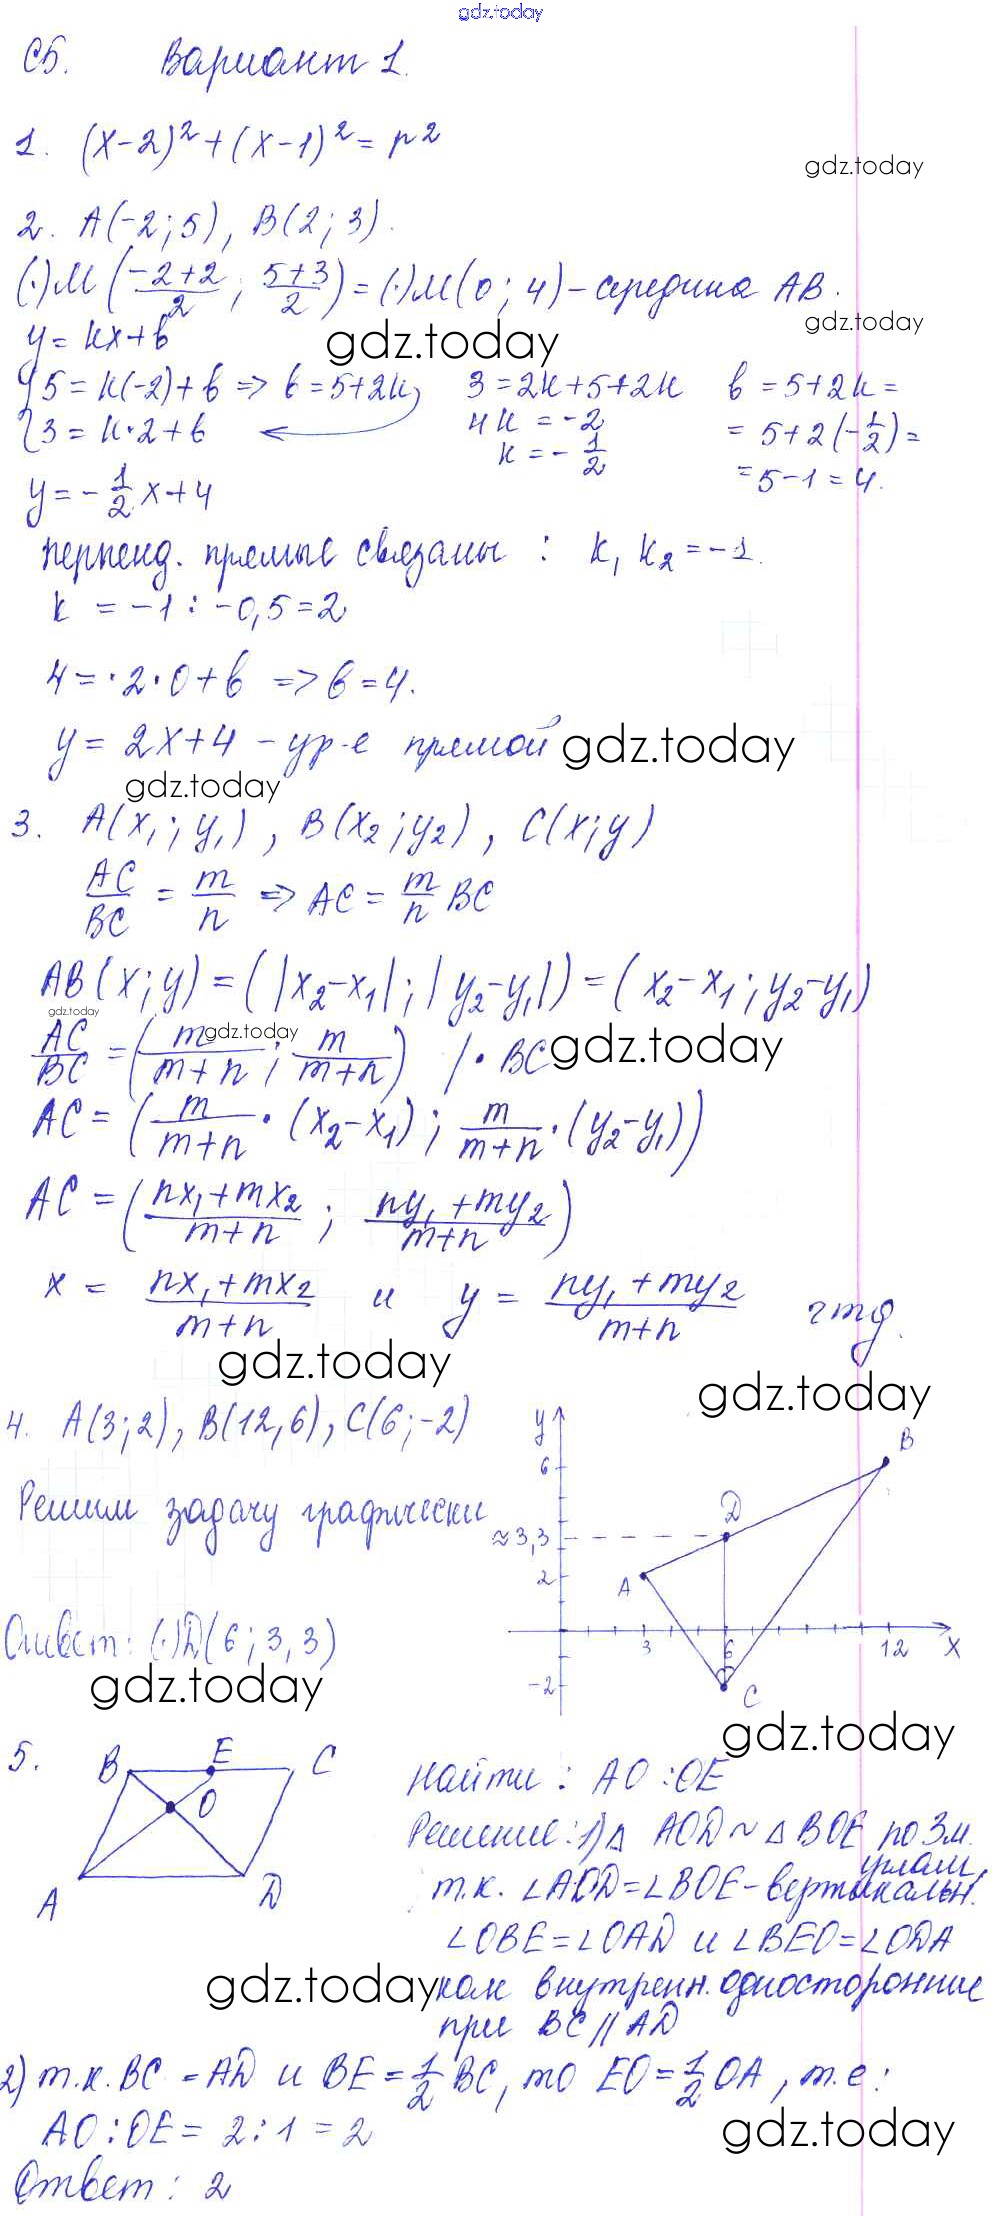 gdz.today
С5. Вариант 1.
1. (x-2)² + (x-1)² = r²
gdz.today
2. A(-2; 5), B(2; 3).
(·)M ((-2+2)/2 ; (5+3)/2) = (·)M(0; 4) - середина AB.
gdz.today
y = kx + b
gdz.today
{5 = k(-2) + b => b = 5+2k, 3 = 2k+5+2k b = 5+2k =
{3 = k·2 + b 4k = -2 = 5+2(-1/2) =
k = -1/2 = 5-1 = 4.
y = -1/2 x + 4
перпенд. прямые связаны : k₁ k₂ = -1.
k = -1 : -0,5 = 2
4 = ·2·0 + b => b = 4.
y = 2x+4 - ур-е прямой
gdz.today
gdz.today
3. A(x₁; y₁), B(x₂; y₂), C(x; y)
AC/BC = m/n => AC = m/n BC
AB(x; y) = (|x₂-x₁|; |y₂-y₁|) = (x₂-x₁; y₂-y₁)
gdz.today
gdz.today
AC/BC = (m/(m+n) ; m/(m+n)) /· BC
gdz.today
AC = (m/(m+n) · (x₂-x₁); m/(m+n) · (y₂-y₁))
AC = ((nx₁+mx₂)/(m+n) ; (ny₁+my₂)/(m+n))
x = (nx₁+mx₂)/(m+n) и y = (ny₁+my₂)/(m+n) чтд.
gdz.today
gdz.today
4. A(3; 2), B(12, 6), C(6; -2)
Решим задачу графически
Ответ: (·)D(6; 3,3)
y
B
6
D
≈3,3
2
A
3 6 12 x
-2
C
gdz.today
gdz.today
5. B E C
O
A D
Найти: AO : OE
Решение: 1) △ AOD ~ △ BOE по 3м.
углам,
т.к. ∠AOD = ∠BOE - вертикальн.
∠OBE = ∠OAD и ∠BEO = ∠ODA
gdz.today
как внутренн. односторонние
при BC || AD
2) т.к. BC = AD и BE = 1/2 BC, то EO = 1/2 OA, т.е:
AO : OE = 2 : 1 = 2
gdz.today
Ответ: 2